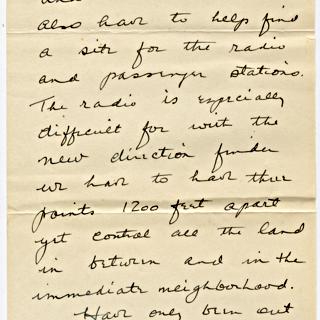 also have to help find
a site for the radio
and passenger stations.
The radio is especially
difficult for with the
new direction finder
we have to have three
points 1200 feet apart
yet control all the land
in between and in the
immediate neighborhood.
Have only been out